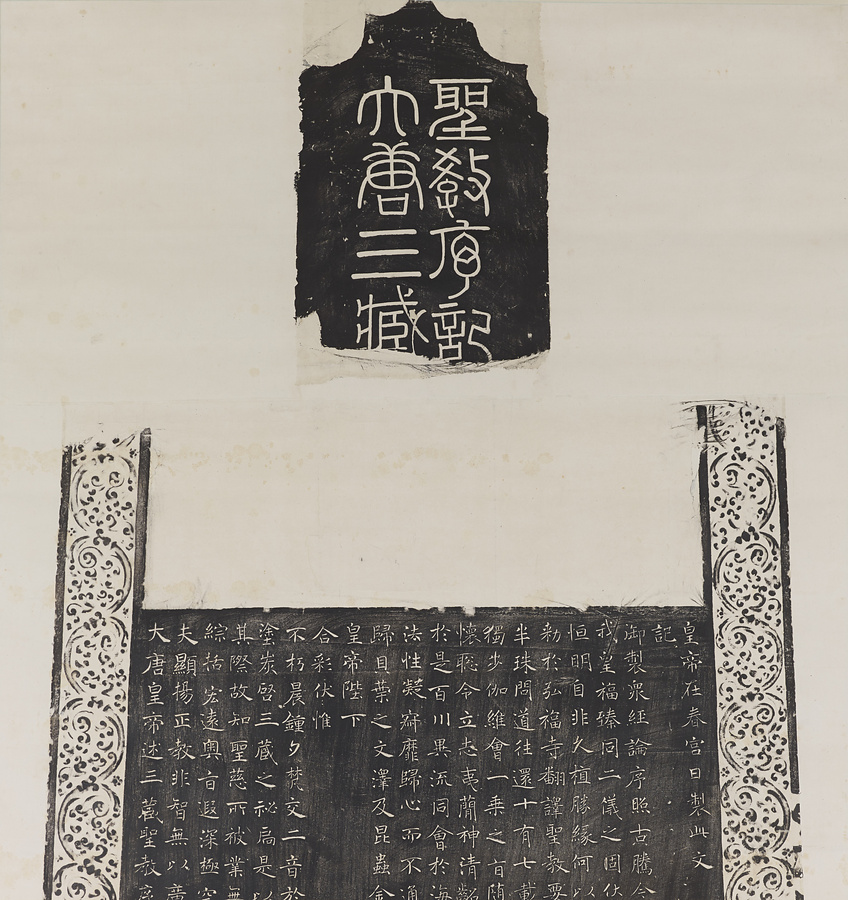 大唐三藏
聖教序記
大唐皇帝述三藏聖教序
夫顯揚正教非智無以廣
綜括宏遠奧旨遐深極空
其際故知聖慈所被業無
塗炭啓三藏之祕扃是以
不朽晨鐘夕梵交二音於
合彩伏惟
皇帝陛下
歸貝葉之文澤及昆蟲金
法性凝寂靡歸心而不通
於是百川異流同會於海
懷聰令立志夷簡神清齠
獨步伽維會一乘之旨隨
半珠問道往還十有七載
勑於弘福寺翻譯聖教要
恒明自非久植勝緣何以
我皇福臻同二儀之固伏
御製眾經論序照古騰今
記
皇帝在春宮日製此文